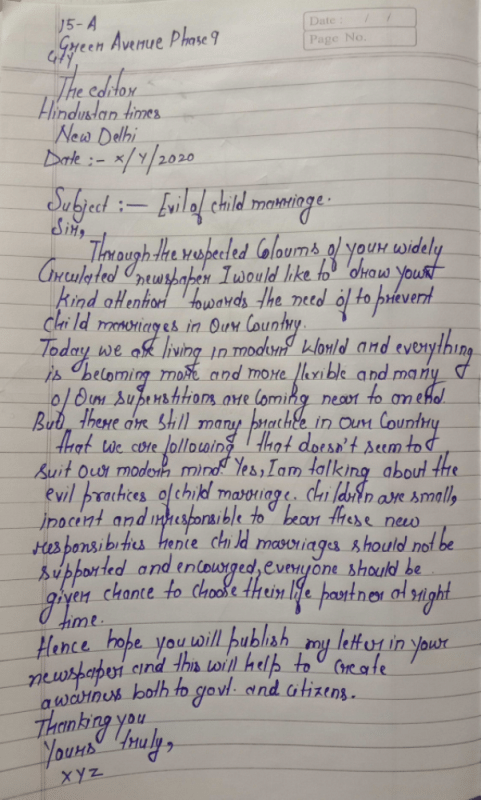 Date : / /
Page No.
15-A
Green Avenue Phase 9
City
The editor
Hindustan times
New Delhi
Date :- x/Y/2020
Subject :- Evil of child marriage.
Sir,
Through the respected Coloums of your widely
Circulated newspaper I would like to draw your
kind attention towards the need of to prevent
child marriages in Our Country.
Today we are living in modern world and everything
is becoming more and more flexible and many
of Our superstitions are coming near to an end.
But, there are still many practice in our Country
that we are following that doesn't seem to
suit our modern mind. Yes, I am talking about the
evil practices of child marriage. Children are small,
inocent and irresponsible to bear these new
responsibities hence child marriages should not be
supported and encourged, everyone should be
given chance to choose their life partner at right
time.
Hence hope you will publish my letter in your
newspaper and this will help to create
awarness both to govt. and citizens.
Thanking you
Yours truly,
XYZ